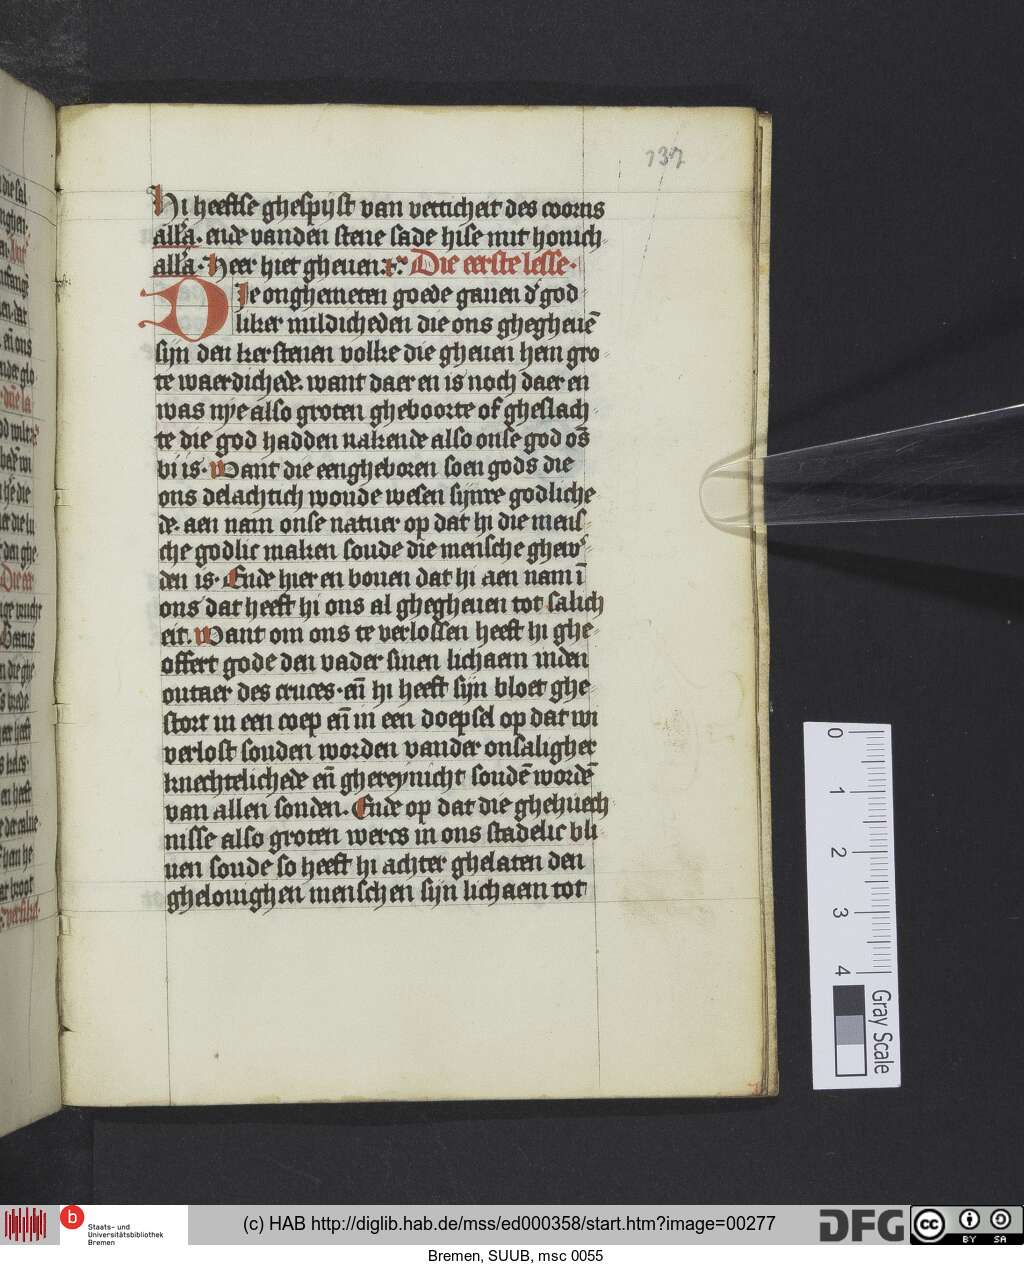 137
Hi heeftse ghespijst van vetticheit des coorns
all'a. ende vanden stene sade hise mit honich
all'a. Heer hiet gheuen. Die eerste lesse.
Die onghemeten goede gauen d' god
liker mildicheden die ons ghegheuē
sijn den kerstenen volke die gheuen hem gro
te waerdichede. want daer en is noch daer en
was nye also groten gheboorte of gheslach
te die god hadden nakende also onse god os̄
bi is. Want die eengheboren soen gods die
ons delachtich woude wesen sijnre godliche
de. aen nam onse natuer op dat hi die mens
che godlic maken soude die mensche ghew'
den is. Ende hier en bouen dat hi aen nam ī
ons dat heeft hi ons al ghegheuen tot salich
eit. Want om ons te verlossen heeft hi ghe
offert gode den vader sinen lichaem inden
outaer des cruces. eñ hi heeft sijn bloet ghe
stort in een coep eñ in een doepsel op dat wi
verlost souden worden vander onsaligher
knechtelichede eñ ghereynicht soudē wordē
van allen sonden. Ende op dat die ghehuech
nisse also groten wercs in ons stadelic bli
uen soude so heeft hi achter ghelaten den
ghelouighen menschen sijn lichaem tot
0
1
2
3
4
Gray Scale
Staats- und
Universitätsbibliothek
Bremen
(c) HAB http://diglib.hab.de/mss/ed000358/start.htm?image=00277
DFG
CC BY SA
Bremen, SUUB, msc 0055